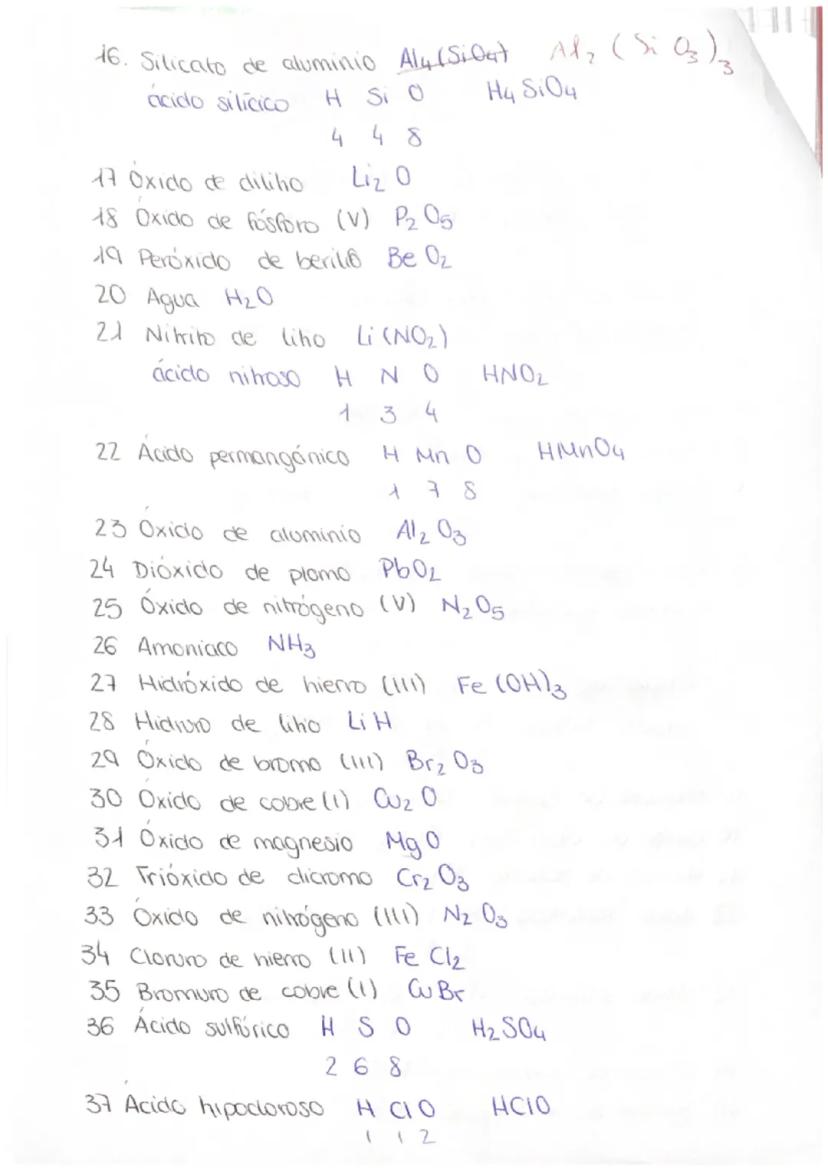 16. Silicato de aluminio Al4(SiO4) Al2(SiO3)3
ácido silícico H Si O H4SiO4
4 4 8
17 Óxido de dilitio Li2O
18 Óxido de fósforo (V) P2O5
19 Peróxido de berilio BeO2
20 Agua H2O
21 Nitrito de litio Li(NO2)
ácido nitroso H N O HNO2
1 3 4
22 Ácido permangánico H Mn O HMnO4
1 7 8
23 Óxido de aluminio Al2O3
24 Dióxido de plomo PbO2
25 Óxido de nitrógeno (V) N2O5
26 Amoniaco NH3
27 Hidróxido de hierro (III) Fe(OH)3
28 Hidruro de litio LiH
29 Óxido de bromo (III) Br2O3
30 Óxido de cobre (I) Cu2O
31 Óxido de magnesio MgO
32 Trióxido de dicromo Cr2O3
33 Óxido de nitrógeno (III) N2O3
34 Cloruro de hierro (II) FeCl2
35 Bromuro de cobre (I) CuBr
36 Ácido sulfúrico H S O H2SO4
2 6 8
37 Ácido hipocloroso H Cl O HClO
1 1 2